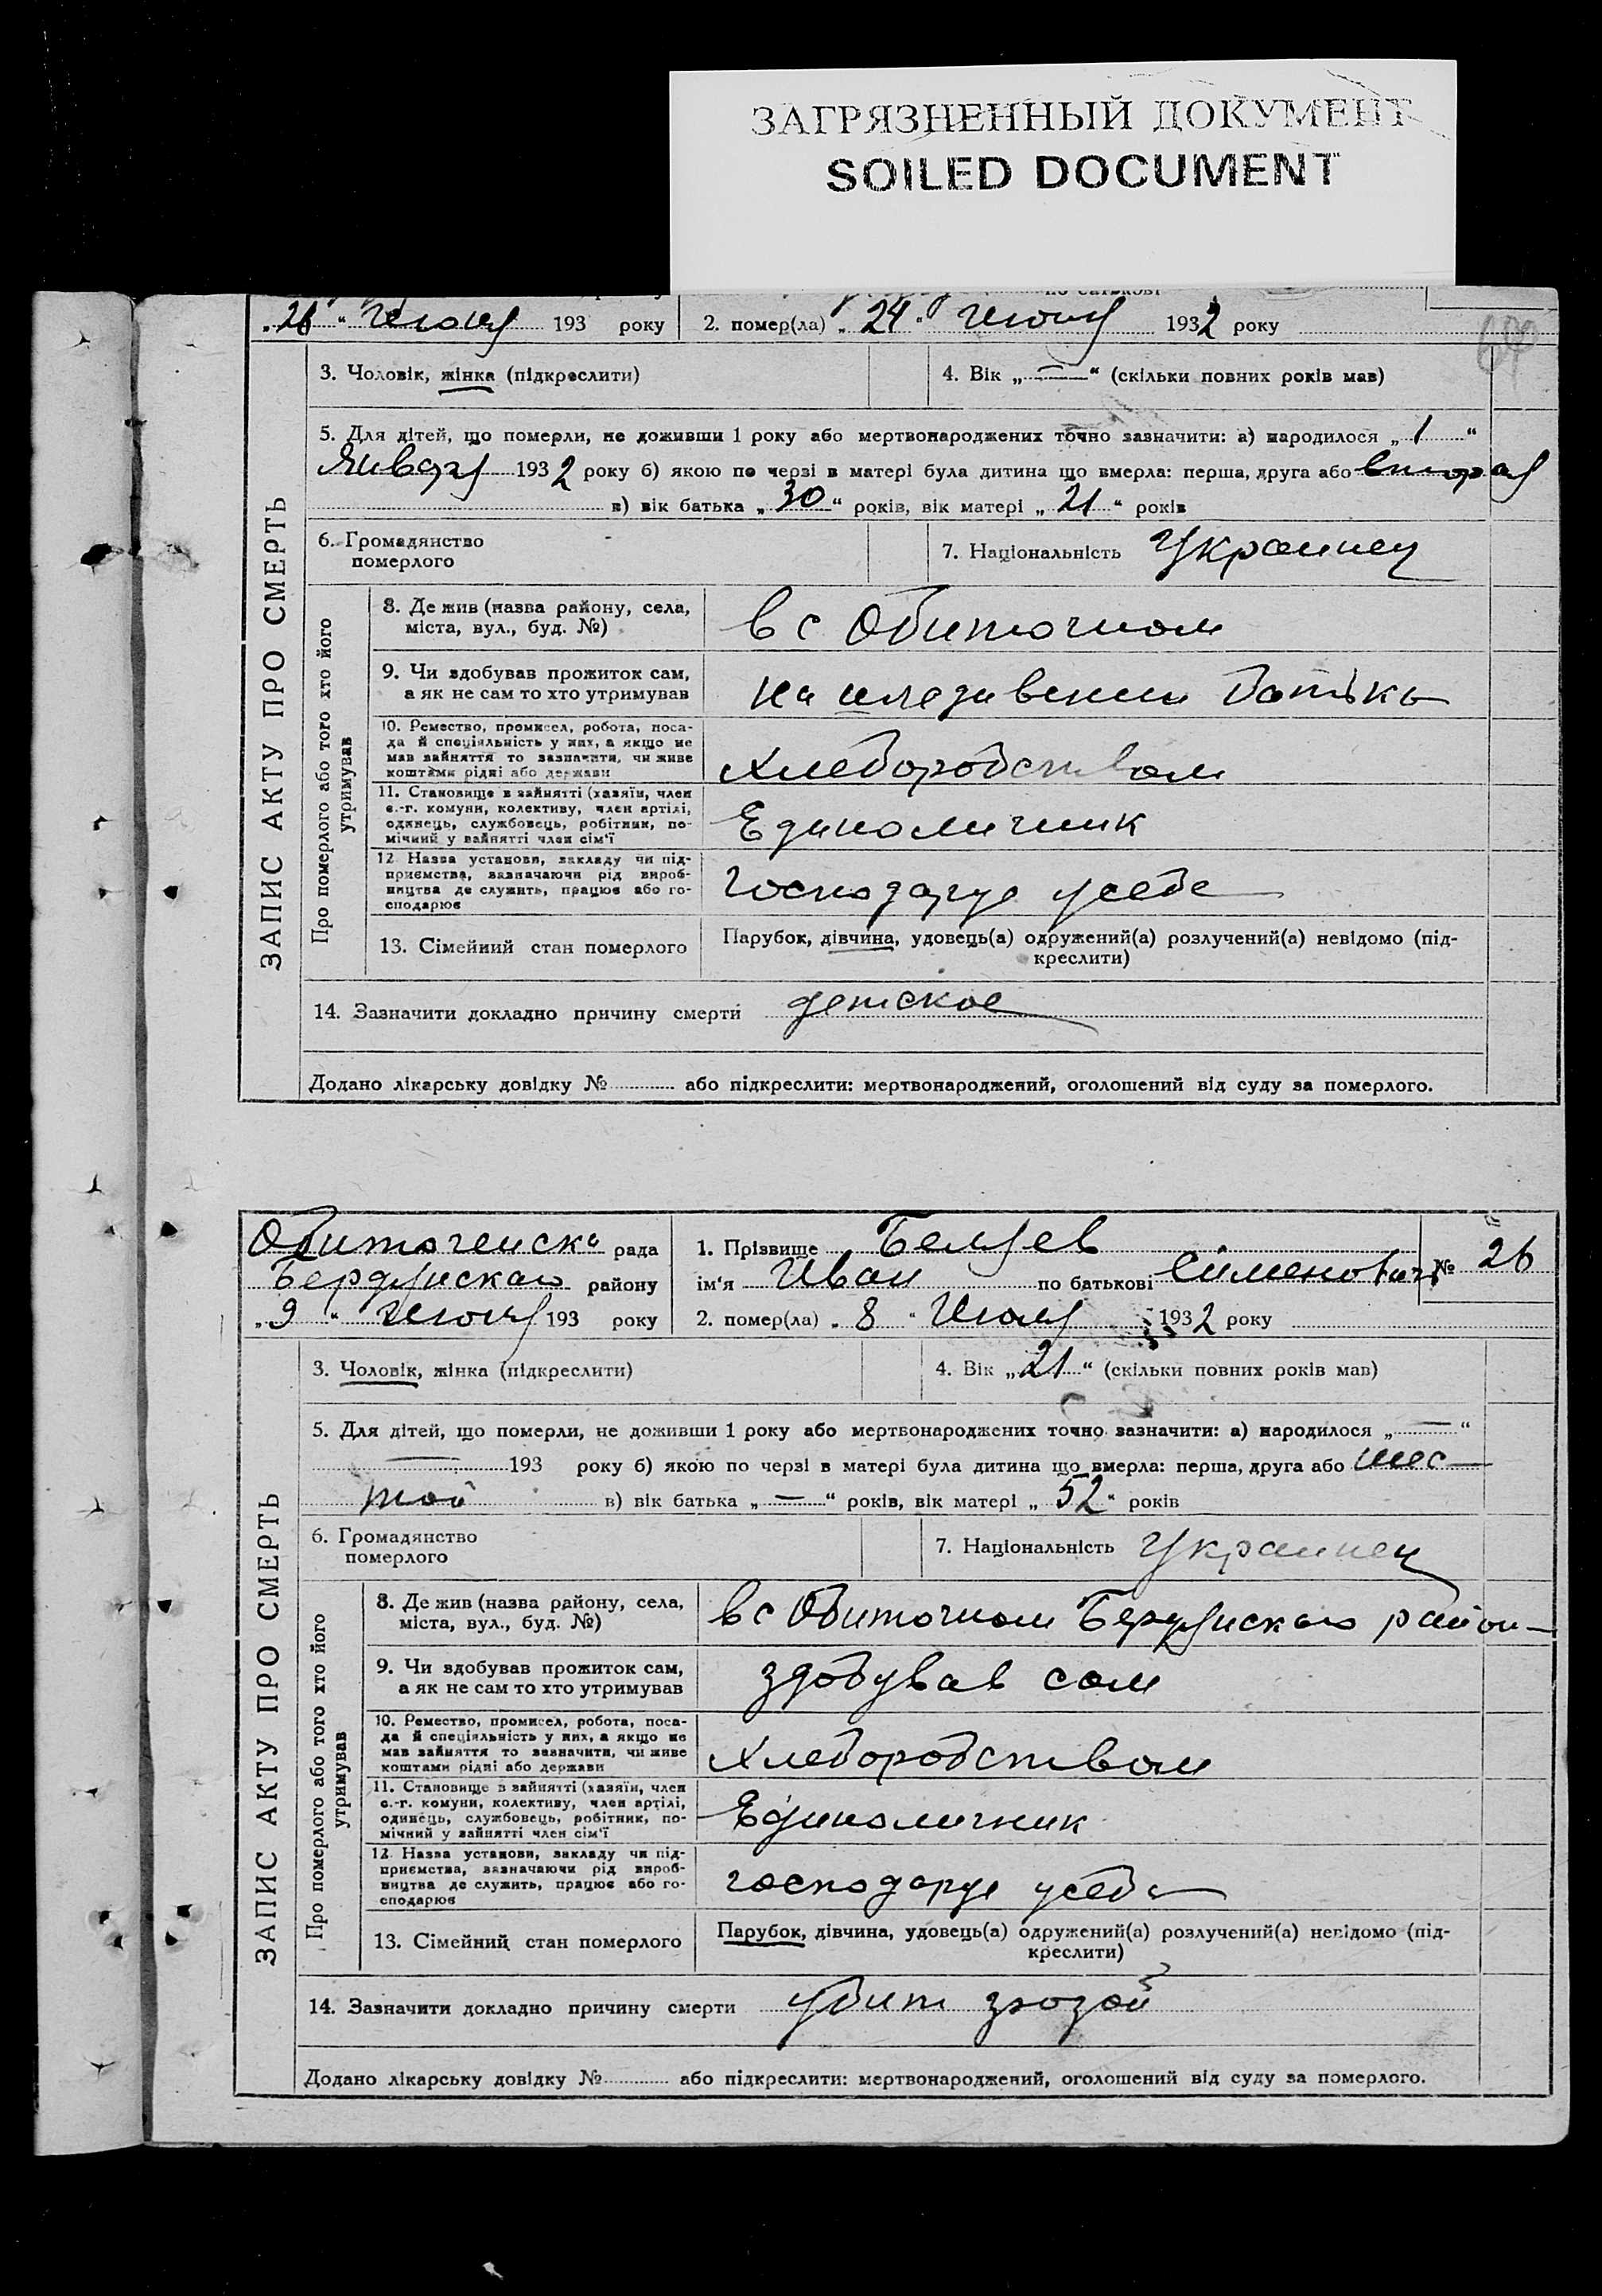 ЗАГРЯЗНЕННЫЙ ДОКУМЕНТ
SOILED DOCUMENT
„26“ 193 року
2. помер(ла) „24“ 1932 року
ЗАПИС АКТУ ПРО СМЕРТЬ
3. Чоловік, жінка (підкреслити)
4. Вік „—“ (скільки повних років мав)
5. Для дітей, що померли, не доживши 1 року або мертвонароджених точно зазначити: а) народилося „1“
Января 1932 року б) якою по черзі в матері була дитина що вмерла: перша, друга або вторая
в) вік батька „30“ років, вік матері „21“ років
6. Громадянство
померлого
7. Національність Украинец
Про померлого або того хто його
утримував
8. Де жив (назва району, села,
міста, вул., буд. №)
в с Обиточном
9. Чи здобував прожиток сам,
а як не сам то хто утримував
На батька
10. Ремество, промисел, робота, поса-
да й спеціяльність у них, а якщо не
мав зайняття то зазначити, чи живе
коштами рідні або держави
Хлебородством
11. Становище в зайнятті (хазяїн, член
с.-г. комуни, колективу, член артілі,
одинець, службовець, робітник, по-
мічний у зайнятті член сім'ї
Единоличник
12 Назва установи, закладу чи під-
приємства, зазначаючи рід вироб-
ництва де служить, працює або го-
сподарює
господарує у себе
13. Сімейний стан померлого
Парубок, дівчина, удовець(а) одружений(а) розлучений(а) невідомо (під-
креслити)
14. Зазначити докладно причину смерти детское
Додано лікарську довідку № або підкреслити: мертвонароджений, оголошений від суду за померлого.
Обиточенска рада
Бердянского району
„9“ 193 року
1. Прізвище Беляев
ім'я Иван по батькові Сіменович
№ 26
2. помер(ла) „8“ 1932 року
ЗАПИС АКТУ ПРО СМЕРТЬ
3. Чоловік, жінка (підкреслити)
4. Вік „21“ (скільки повних років мав)
5. Для дітей, що померли, не доживши 1 року або мертвонароджених точно зазначити: а) народилося „—“
— 193 року б) якою по черзі в матері була дитина що вмерла: перша, друга або шес-
той в) вік батька „—“ років, вік матері „52“ років
6. Громадянство
померлого
7. Національність Украинец
Про померлого або того хто його
утримував
8. Де жив (назва району, села,
міста, вул., буд. №)
в с Обиточном Бердянского район
9. Чи здобував прожиток сам,
а як не сам то хто утримував
здобував сам
10. Ремество, промисел, робота, поса-
да й спеціяльність у них, а якщо не
мав зайняття то зазначити, чи живе
коштами рідні або держави
Хлебородством
11. Становище в зайнятті (хазяїн, член
с.-г. комуни, колективу, член артілі,
одинець, службовець, робітник, по-
мічний у зайнятті член сім'ї
Единоличник
12 Назва установи, закладу чи під-
приємства, зазначаючи рід вироб-
ництва де служить, працює або го-
сподарює
господарує у себе
13. Сімейний стан померлого
Парубок, дівчина, удовець(а) одружений(а) розлучений(а) невідомо (під-
креслити)
14. Зазначити докладно причину смерти убит грозой
Додано лікарську довідку № або підкреслити: мертвонароджений, оголошений від суду за померлого.